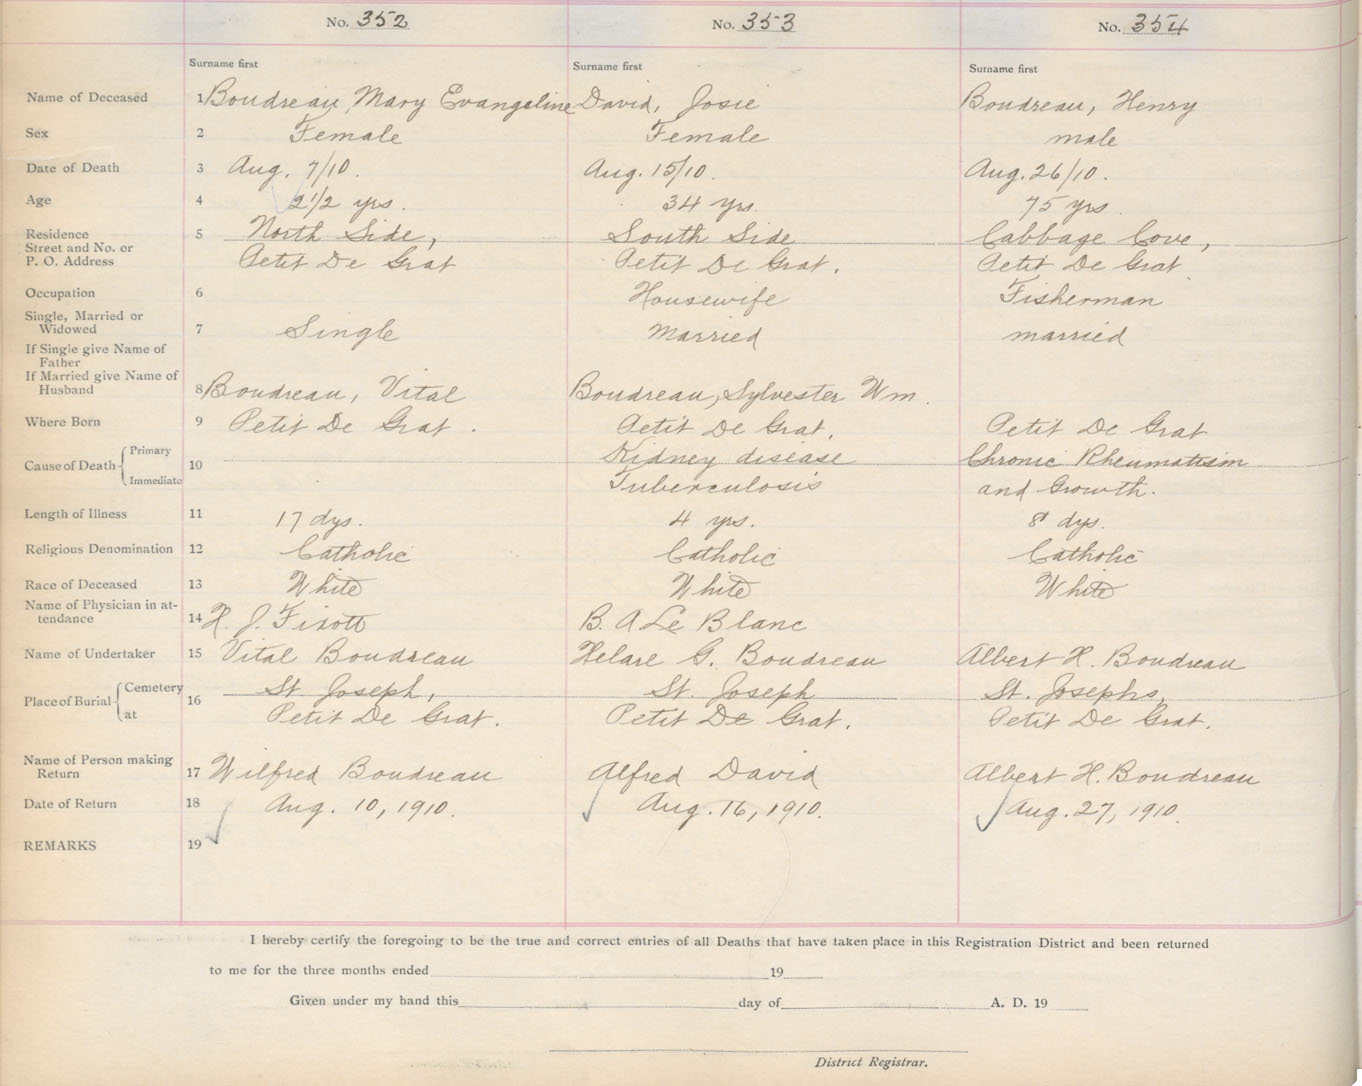 No. 352 No. 353 No. 354
Surname first Surname first Surname first
Name of Deceased 1 Boudreau, Mary Evangeline David, Josie Boudreau, Henry
Sex 2 Female Female male
Date of Death 3 Aug. 7/10. Aug. 15/10. Aug. 26/10.
Age 4 2 1/2 yrs. 34 yrs. 75 yrs.
Residence 5 North Side, South Side Cabbage Cove,
Street and No. or
P. O. Address Petit De Grat Petit De Grat. Petit De Grat.
Occupation 6 Housewife Fisherman
Single, Married or
Widowed 7 Single Married married
If Single give Name of
Father
If Married give Name of
Husband 8 Boudreau, Vital Boudreau, Sylvester Wm.
Where Born 9 Petit De Grat. Petit De Grat. Petit De Grat
Cause of Death Primary 10 Kidney disease Chronic Rheumatism
Immediate Tuberculosis and Growth.
Length of Illness 11 17 dys. 4 yrs. 8 dys.
Religious Denomination 12 Catholic Catholic Catholic
Race of Deceased 13 White White White
Name of Physician in at-
tendance 14 H. J. Fixott B. A Le Blanc
Name of Undertaker 15 Vital Boudreau Helare G. Boudreau Albert H. Boudreau
Place of Burial Cemetery 16 St. Joseph, St. Joseph St. Josephs,
at Petit De Grat. Petit De Grat. Petit De Grat.
Name of Person making
Return 17 Wilfred Boudreau Alfred David Albert H. Boudreau
Date of Return 18 Aug. 10, 1910. Aug. 16, 1910. Aug. 27, 1910.
REMARKS 19
I hereby certify the foregoing to be the true and correct entries of all Deaths that have taken place in this Registration District and been returned
to me for the three months ended 19
Given under my hand this day of A. D. 19
District Registrar.